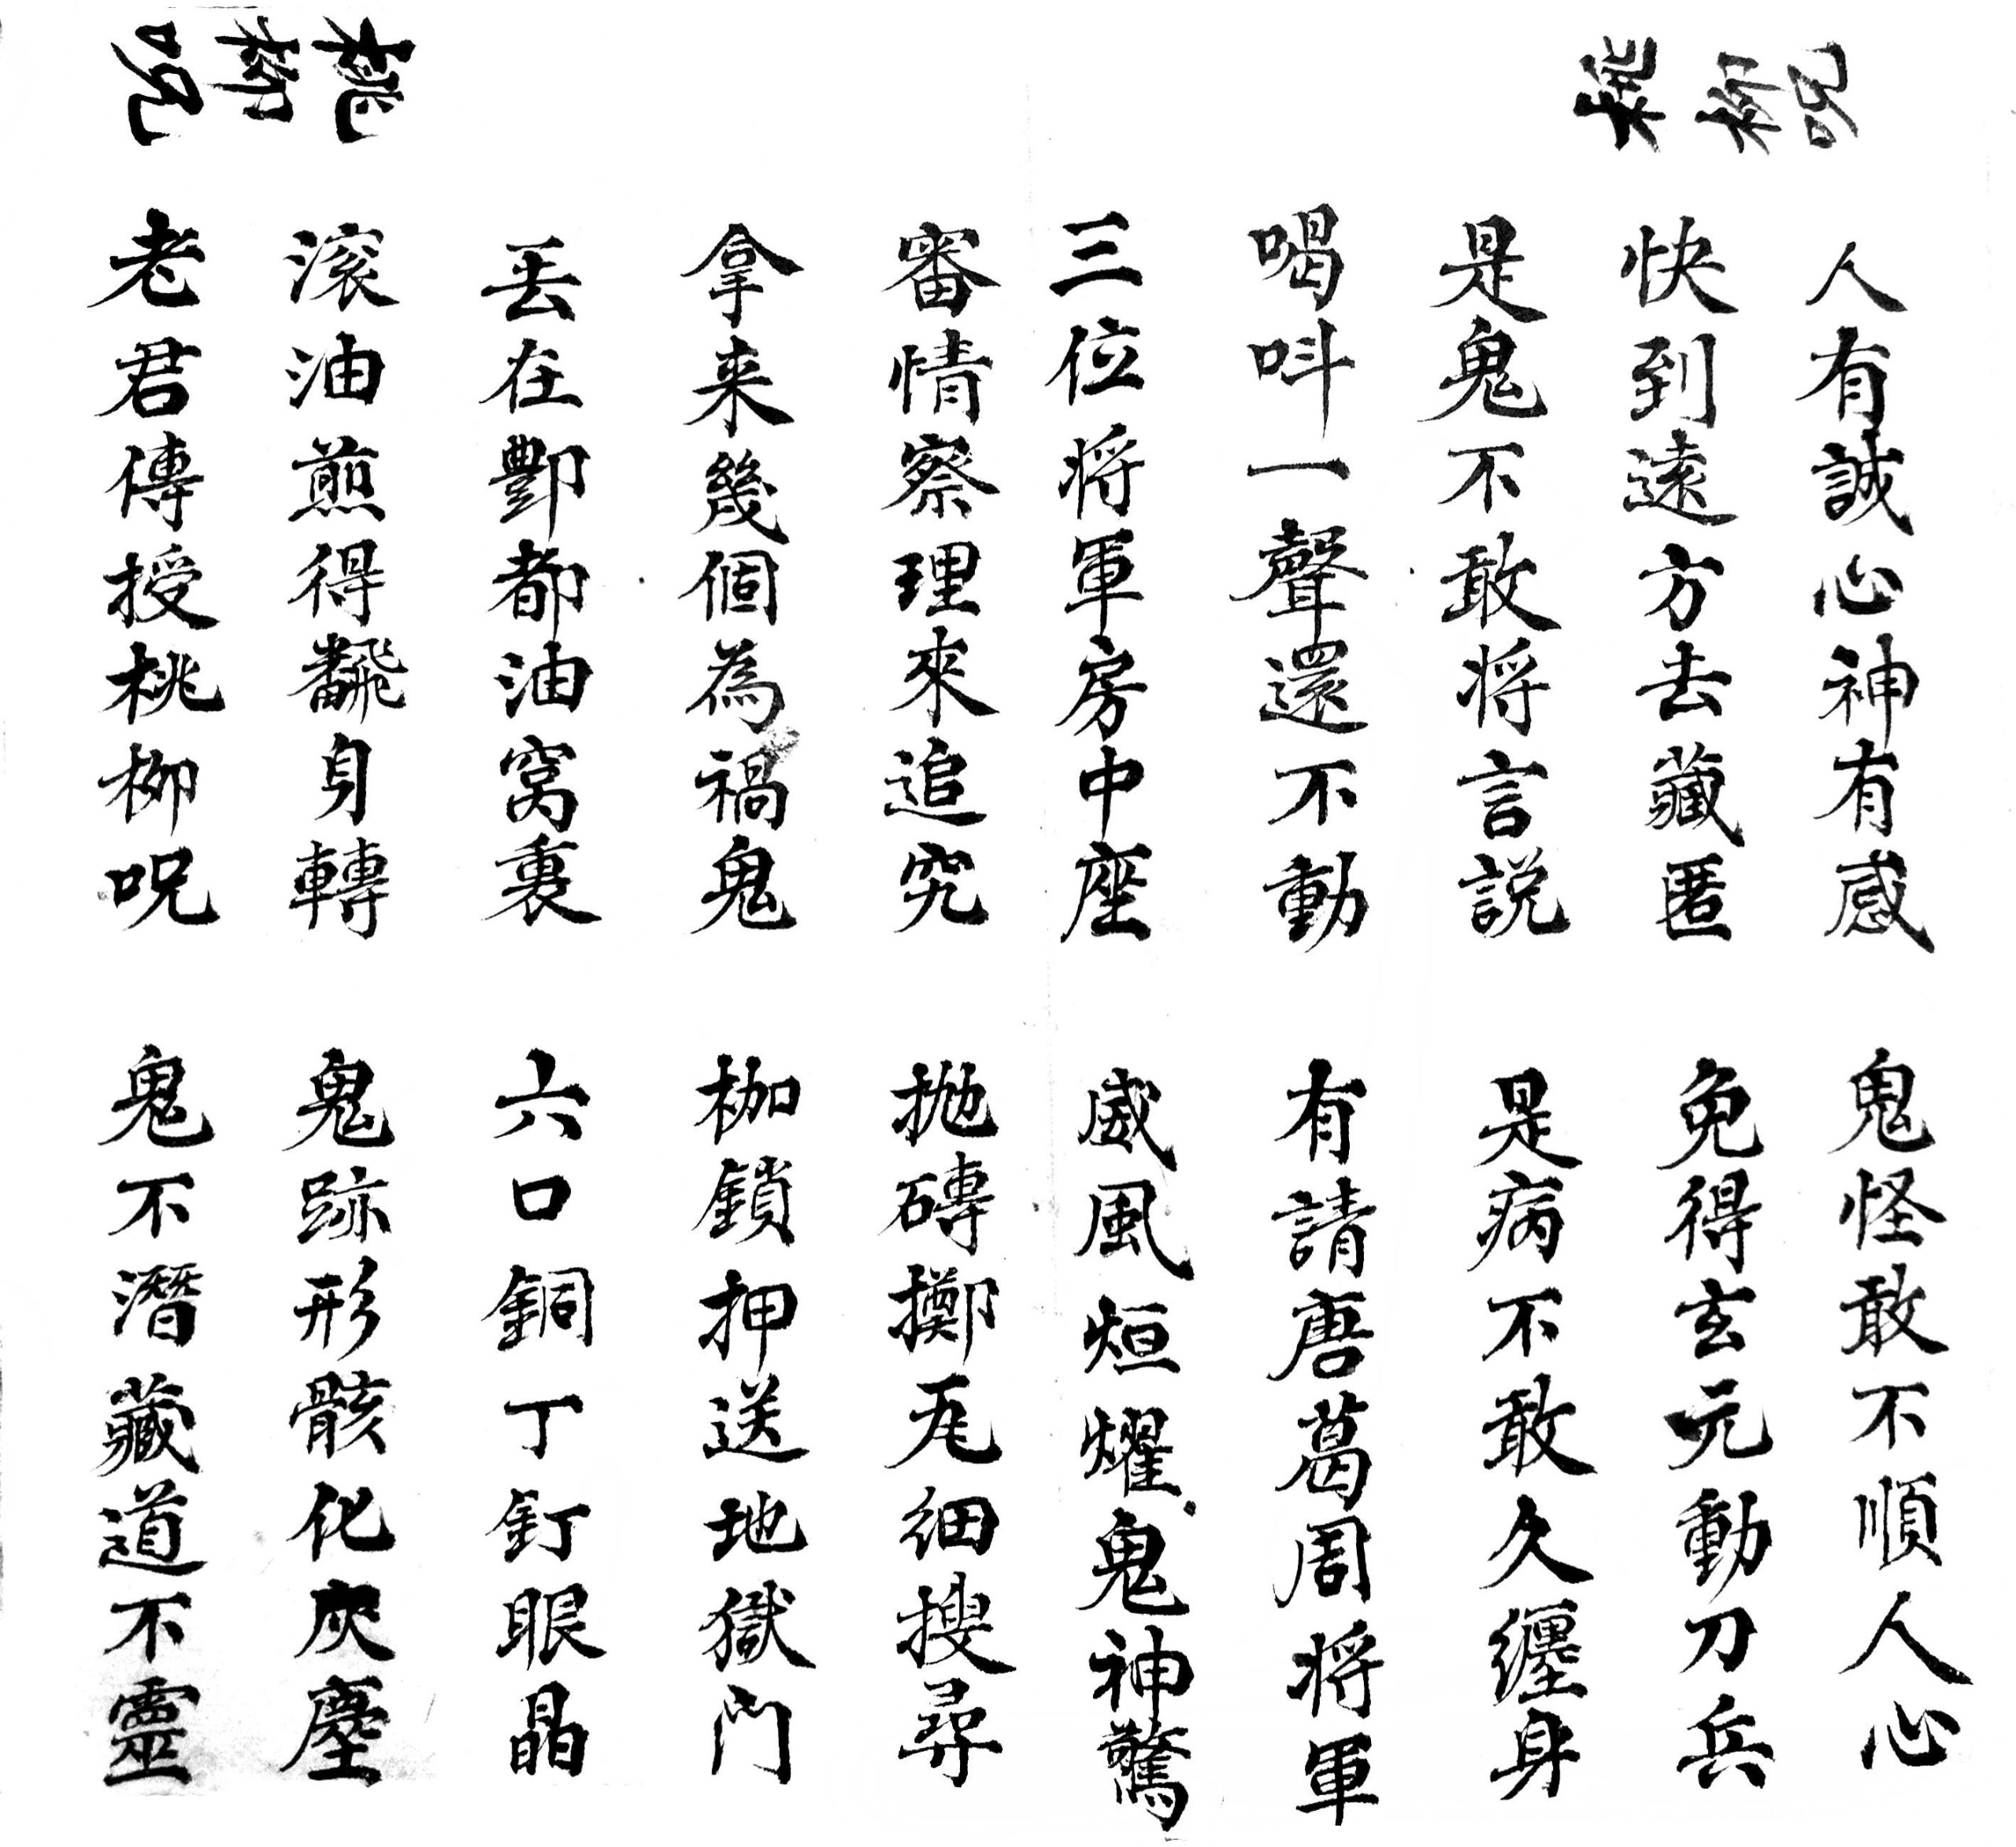 人有誠心神有感
鬼怪敢不順人心
快到遠方去藏匿
免得玄元動刀兵
是鬼不敢將言説
是病不敢久纏身
喝呌一聲還不動
有請唐葛周将軍
三位将軍房中座
威風烜燿鬼神驚
審情察理來追究
抛磚擲瓦细搜尋
拿来幾個為禍鬼
枷鎖押送地獄門
丢在酆都油窩裏
六口銅丁釘眼晶
滚油煎得飜身轉
鬼跡形骸化灰塵
老君傳授桃柳呪
鬼不潛藏道不靈